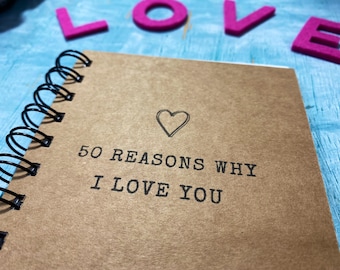 LOVE
50 REASONS WHY
I LOVE YOU